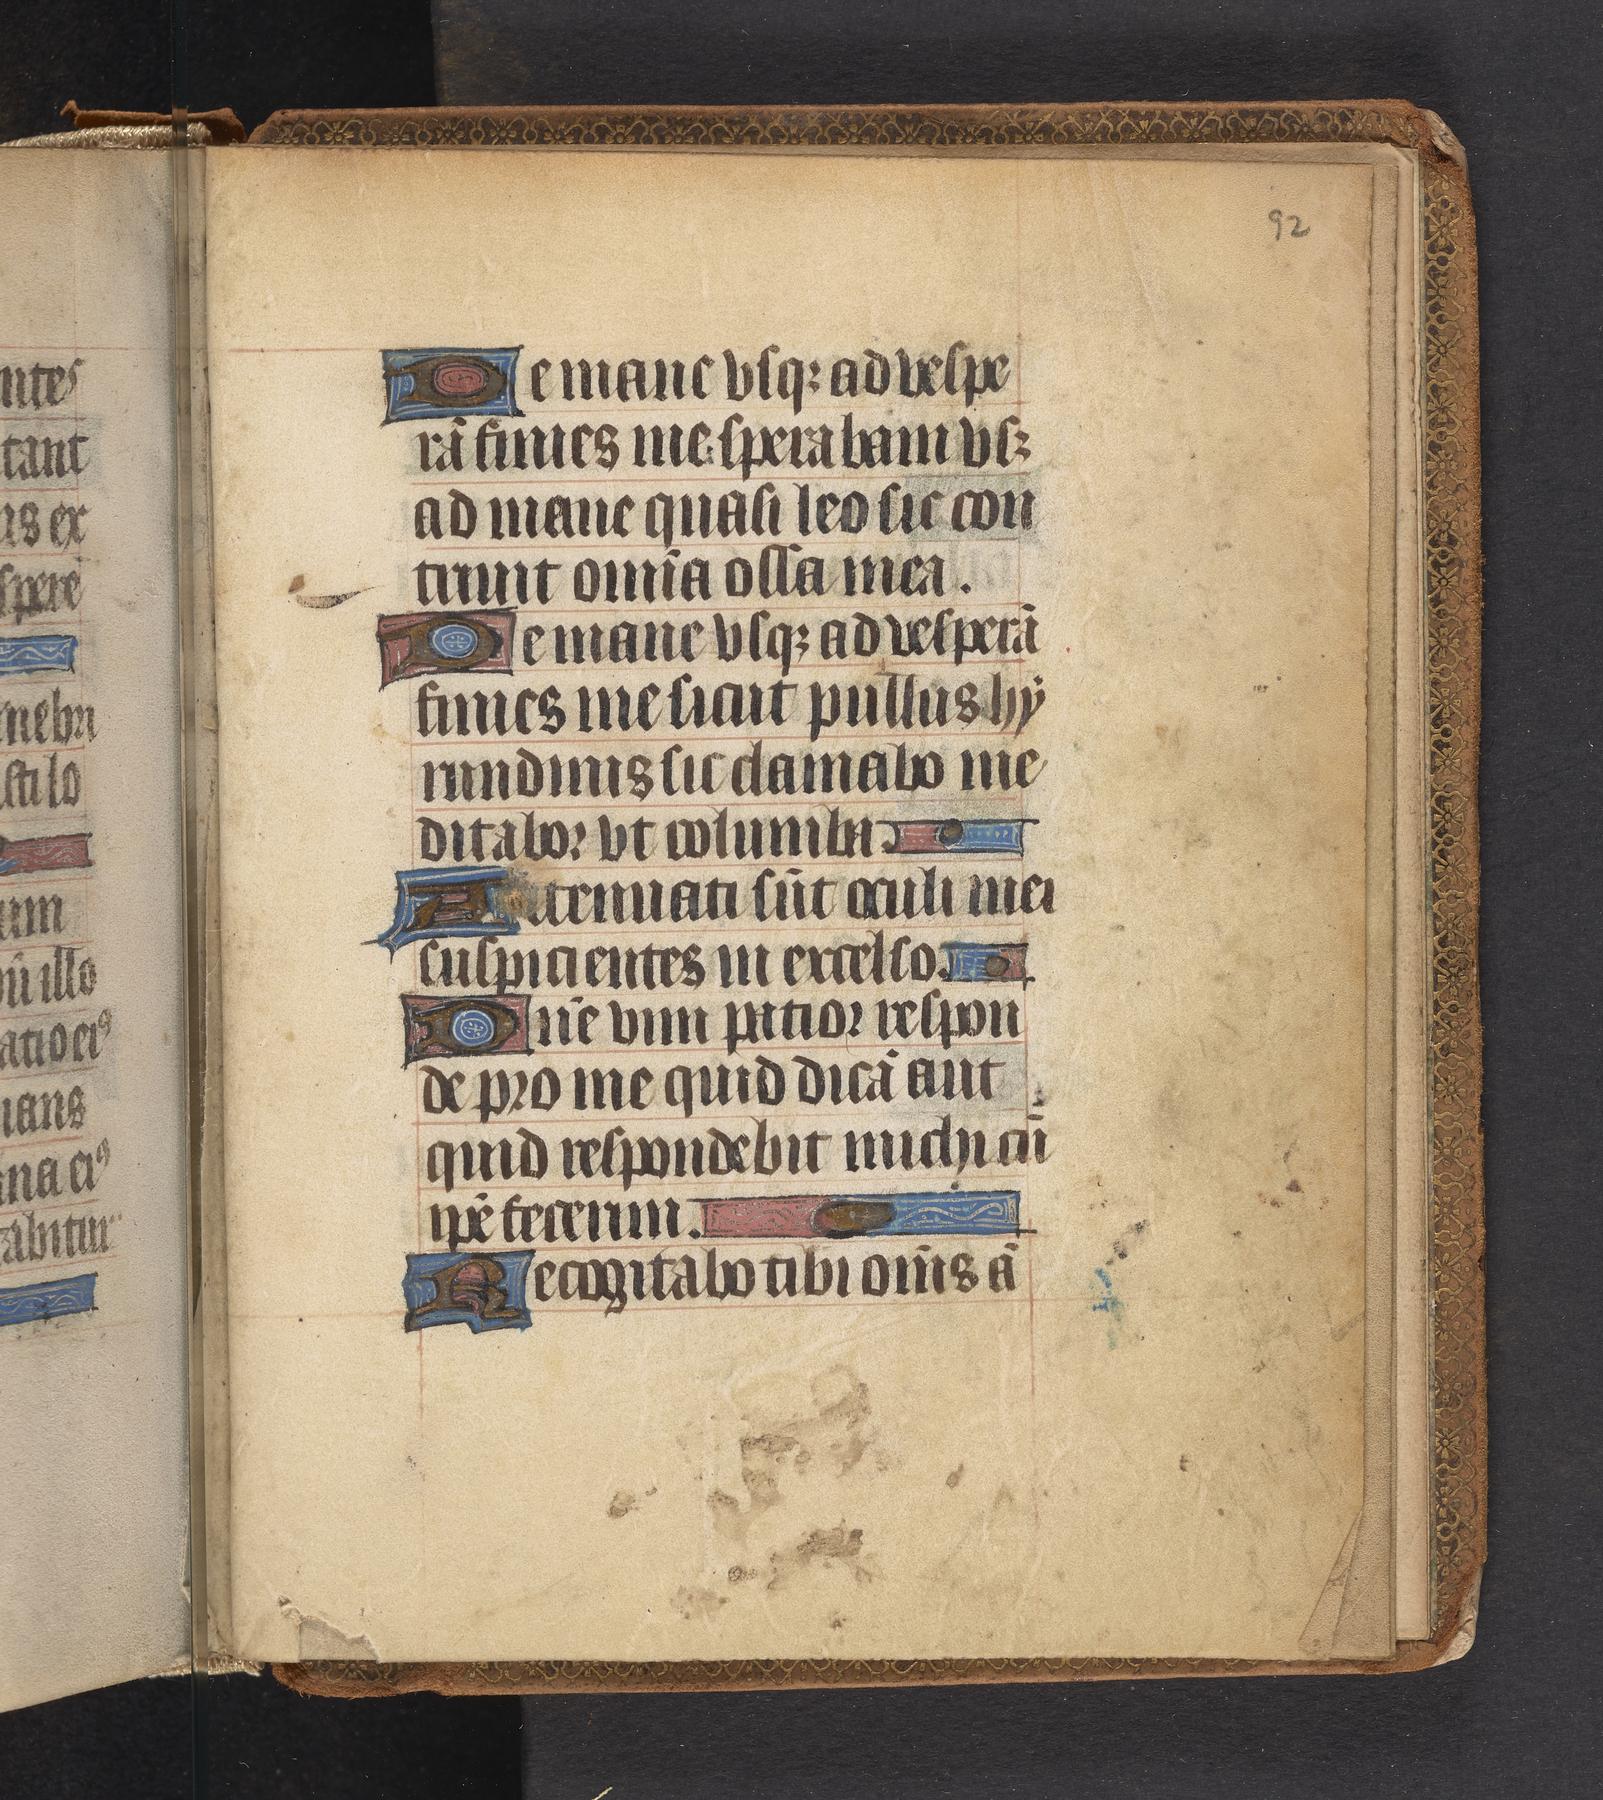 92
De mane vsqꝫ ad vespe
rā finies me sperabam vsꝫ
ad mane quasi leo sic con
triuit om̄ia ossa mea.
De mane vsqꝫ ad vesperā
finies me sicut pullus hy
rundinis sic clamabo me
ditabor vt columba
Attenuati sūt oculi mei
suspicientes in excelso.
Dn̄e vim patior respon
de pro me quid dicā aut
quid respondebit michi cū
ip̄e fecerim.
Recogitabo tibi om̄s ā
ntes
tant
rs ex
spere
enebri
sti lo
um
ū illo
atio eiꝰ
ians
ina eiꝰ
rabitur